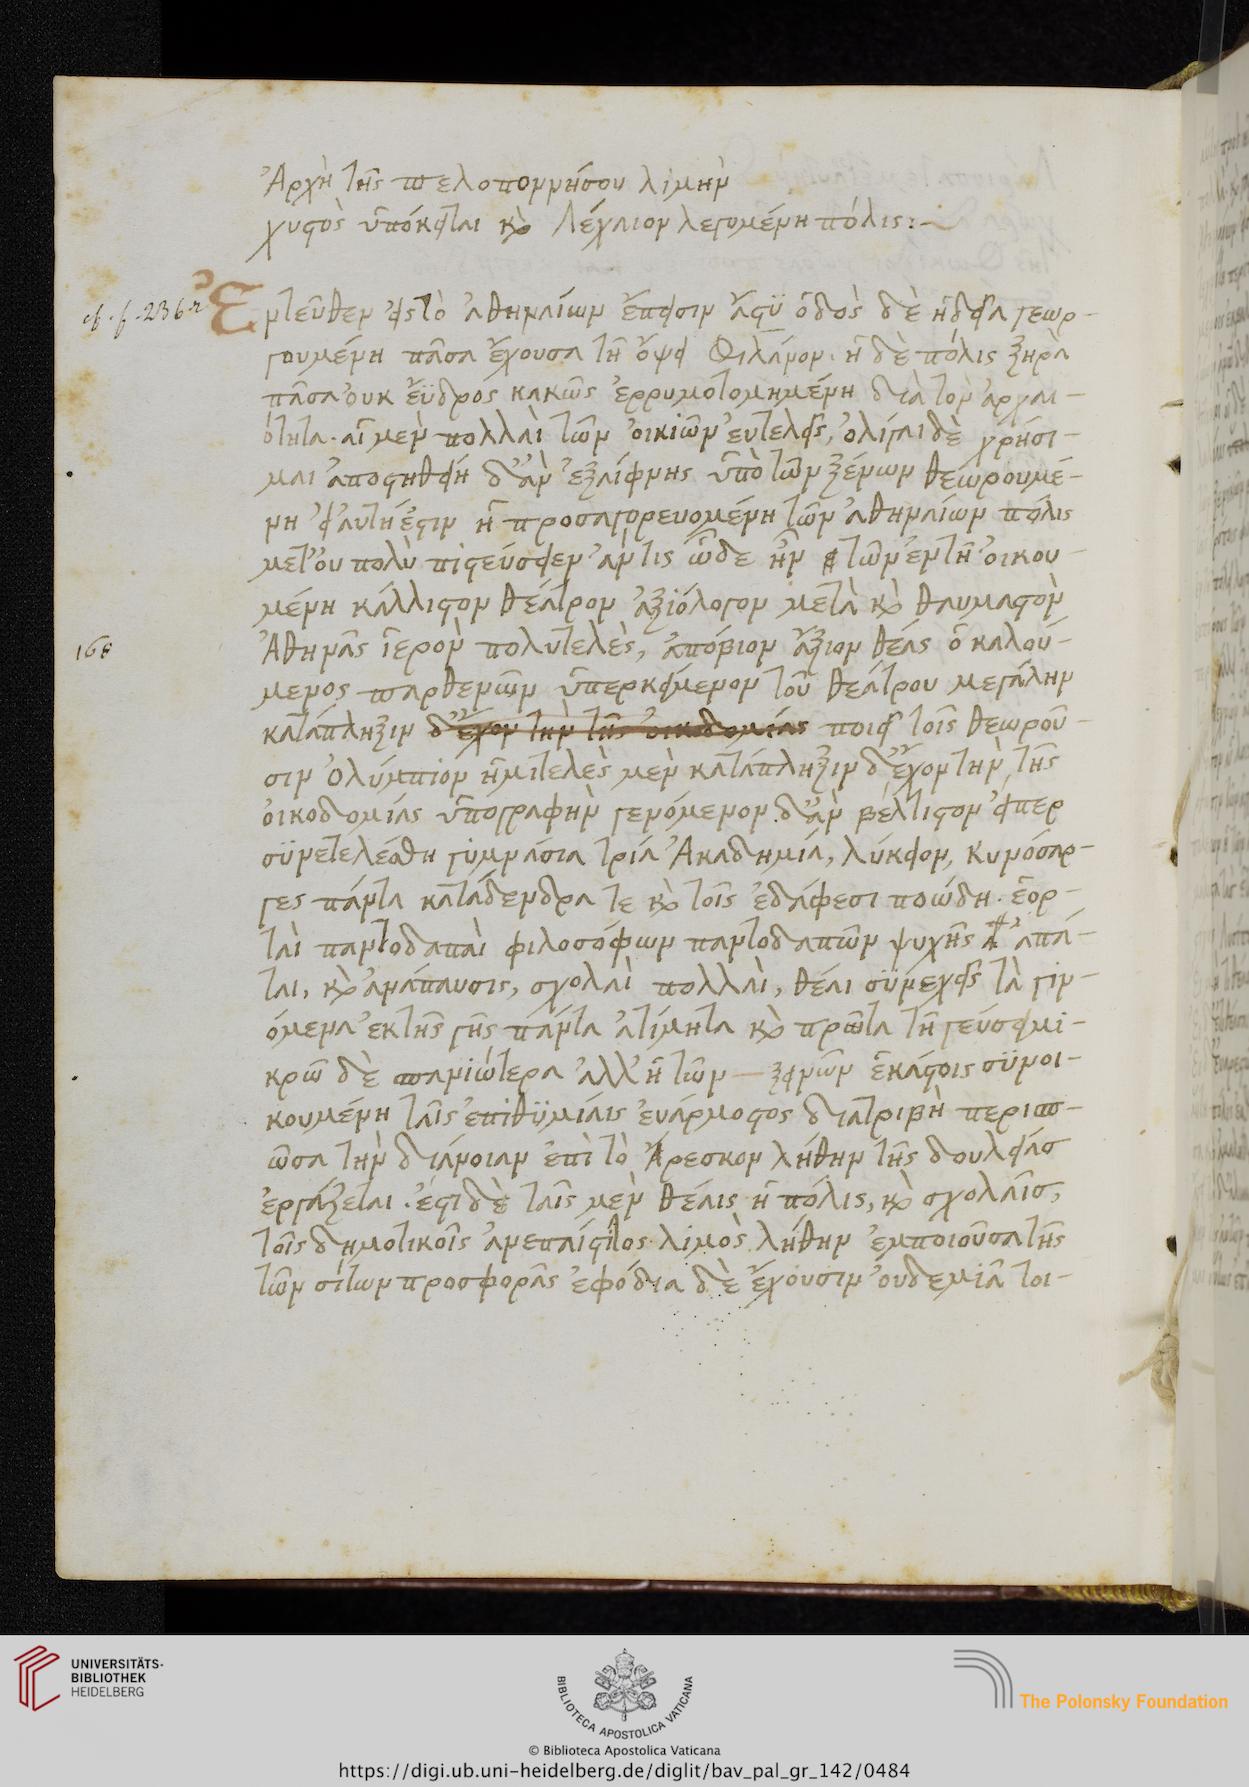 Ἀρχὴ τῆς πελοποννήσου λιμὴν
χυστὸς ὑπόκειται καὶ Λέχαιον λεγομένη πόλις:~
cf. f. 236r
Ἐντεῦθεν εἰς τὸ ἀθηναίων ἔπεισιν ἄστυ ὁδὸς δὲ ἡδεῖα γεωρ-
γουμένη πᾶσα ἔχουσα τῆ ὄψει Φιλάνον. ἡ δὲ πόλις ξηρὰ
πᾶσα οὐκ εὔϋδρος κακῶς ἐρρυμοτομημένη διὰ τὸν ἀρχαι-
ότητα. αἱ μὲν πολλαὶ τῶν οἰκιῶν εὐτελεῖς, ὀλίγαι δὲ χρήσι-
μαι ἀποστηθείη δ' ἂν ἐξαίφνης ὑπὸ τῶν ξένων θεωρουμέ-
νη εἰ αὐτή ἐστιν ἡ προσαγορευομένη τῶν ἀθηναίων πόλις
μετ' οὐ πολὺ πιστεύσειεν ἄν τις ὧδε ἦν τῶν ἐν τῆ οἰκου-
μένη κάλλιστον θέατρον ἀξιόλογον μετὰ καὶ θαυμαστὸν
168
Ἀθηνᾶς ἱερὸν πολυτελὲς, ἀπόβιον ἄξιον θέας ὁ καλού-
μενος παρθενῶν ὑπερκείμενον τοῦ θεάτρου μεγάλην
κατάπληξιν δ' ἔχον τὴν τῆς οἰκοδομίας ποιεῖ τοῖς θεωροῦ-
σιν ὀλύμπιον ἡμιτελὲς μὲν κατάπληξιν δ' ἔχον τὴν τῆς
οἰκοδομίας ὑπογραφὴν γενόμενον δ' ἂν βέλτιστον εἴπερ
συνετελέσθη γύμνάσια τρία Ἀκαδημία, λύκειον, κυνόσαρ-
γες πάντα κατάδενδρα τε καὶ τοῖς ἐδάφεσι ποώδη. ἑορ-
ταὶ παντοδαπαὶ φιλοσόφων παντοδαπῶν ψυχῆς ἀπά-
ται, καὶ ἀνάπαυσις, σχολαὶ πολλαὶ, θέαι συνεχεῖς τὰ γιν-
όμενα ἐκ τῆς γῆς πάντα ἀτίμητα καὶ πρῶτα τῆ γεύσει μι-
κρῶ δὲ σπανιώτερα ἀλλ' ἡ τῶν — ξείνων ἑκάστοις συνοι-
κουμένη ταῖς ἐπιθυμίαις εὐάρμοστος διατριβὴ περισπ-
ῶσα τὴν διάνοιαν ἐπὶ τὸ ἀρέσκον λήθην τῆς δουλείας
ἐργάζεται. ἔστι δὲ ταῖς μὲν θέαις ἡ πόλις, καὶ σχολαῖς,
τοῖς δημοτικοῖς ἀνεπαίστητος λιμὸς λήθην ἐμποιοῦσα τῆς
τῶν σίτων προσφορᾶς ἐφόδια δὲ ἔχουσιν οὐδεμία τοι-
UNIVERSITÄTS-
BIBLIOTHEK
HEIDELBERG
BIBLIOTECA APOSTOLICA VATICANA
The Polonsky Foundation
© Biblioteca Apostolica Vaticana
https://digi.ub.uni-heidelberg.de/diglit/bav_pal_gr_142/0484